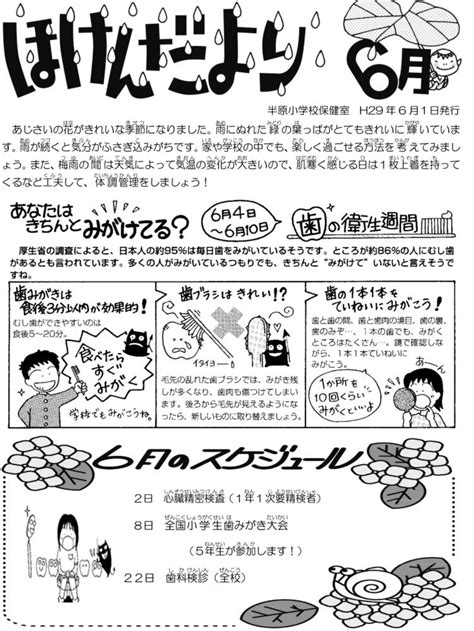 ほけんだより 6月
半原小学校保健室 H29年6月1日発行
あじさいの花がきれいな季節になりました。雨にぬれた緑の葉っぱがとてもきれいに輝いていま
す。雨が続くと気分がふさぎ込みがちです。家や学校の中でも、楽しく過ごせる方法を考えてみまし
ょう。また、梅雨の間は天気によって気温の変化が大きいので、肌寒く感じる日は1枚上着を持って
くるなど工夫して、体調管理をしましょう！
あなたは
きちんとみがけてる？
6月4日
～6月10日
歯の衛生週間
厚生省の調査によると、日本人の約95％は毎日歯をみがいているそうです。ところが約86％の人にむし歯
があるとも言われています。多くの人がみがいているつもりでも、きちんと“みがけて”いないと言えそうで
すね。
歯みがきは
食後3分以内が効果的！
むし歯ができやすいのは
食後5～20分。
食べたら
すぐ
みがく
学校でもみがこうね。
歯ブラシはきれい!?
イタイヨー
毛先の乱れた歯ブラシでは、みがき残
しが多くなり、歯肉も傷つけてしまい
ます。後ろから毛先が見えるようにな
ったら、新しいものに取り替えましょう。
歯の1本1本を
ていねいにみがこう！
歯と歯の間、歯と歯肉の境目、歯の裏、
奥のみぞ…、1本の歯でも、みがくと
ころはたくさん…。鏡で確認しな
がら、1本1本ていねいに
みがこう。
あ～ん
1か所を
10回くらい
みがくといいよ
6月のスケジュール
2日 心臓精密検査（1年1次要精検者）
8日 全国小学生歯みがき大会
（5年生が参加します！）
22日 歯科検診（全校）